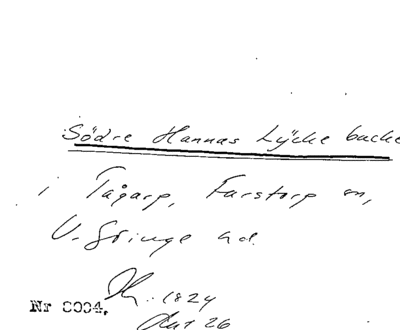 Södre Hannas Lÿcke backe
i Tågarp, Farstorp sn,
V. Göinge hd.
1824
Nr 8004.
26